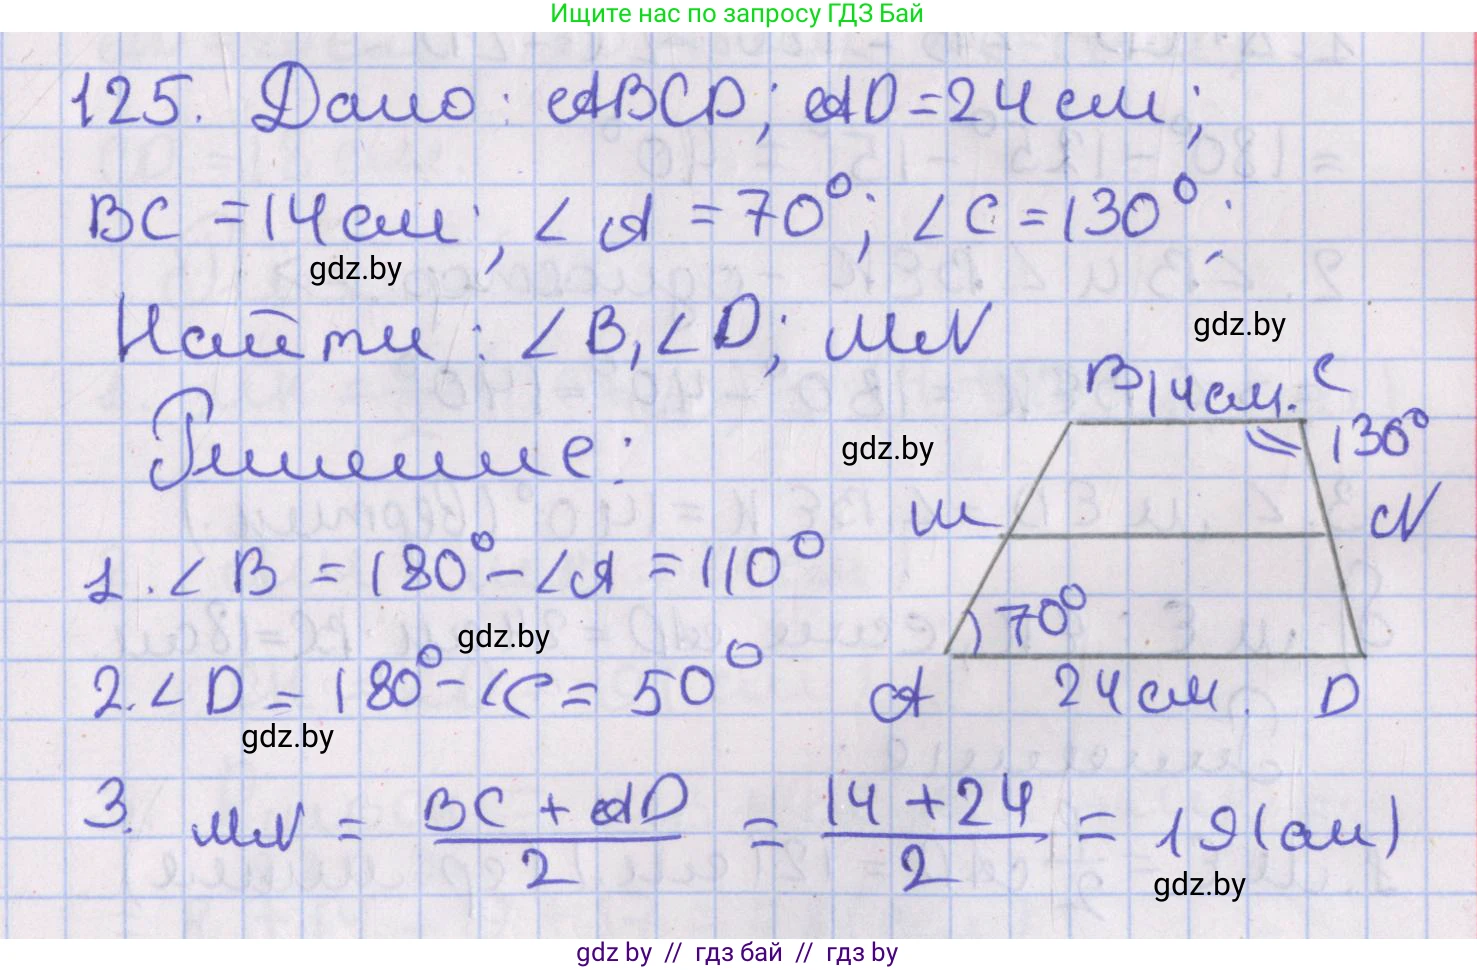 Ищите нас по запросу ГДЗ Бай
125. Дано: ABCD; AD = 24 см;
BC = 14 см; ∠A = 70°; ∠C = 130°;
gdz.by
Найти: ∠B, ∠D; MN
gdz.by
Решение:
gdz.by
B 14 см. C
130°
M N
70°
A 24 см. D
1. ∠B = 180° - ∠A = 110°
gdz.by
2. ∠D = 180° - ∠C = 50°
gdz.by
3. MN = BC + AD / 2 = 14 + 24 / 2 = 19 (см)
gdz.by
gdz by // гдз бай // гдз by